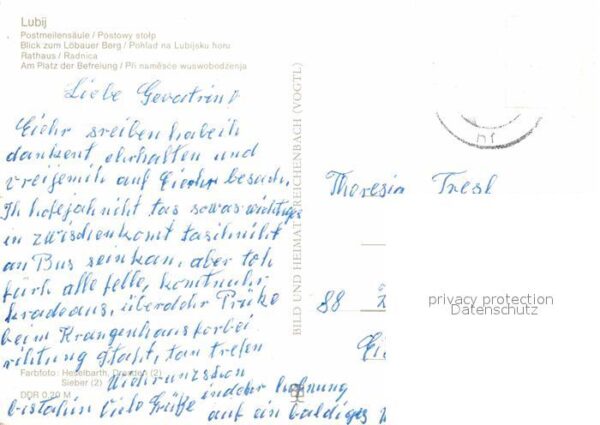 Lubij
Postmeilensäule / Postowy stołp
Blick zum Löbauer Berg / Pohlad na Lubijsku horu
Rathaus / Radnica
Am Platz der Befreiung / Při naměsće wuswobodźenja
Liebe Gevatrin!
Eiehr sreiben habeih
dankent ehrhalten und
vreifemih auf Eiehr besuch,
Ih hofejah niht tas sowas wichtiges
in zwischenkomt tasih niht
an Bus seinkan, aber toh
fürh alle felle, komt nuhr
kradeaus, überdehr Prüke
beim Krangenhaus forbei
richtung Staht, tan trefen
wiehr uns tan
in dehr hofnung
bistahin Viele Grüße auf ein baldiges
Farbfoto: Heselbarth, Dresden (2)
Sieber (2)
DDR 0,20 M
BILD UND HEIMAT REICHENBACH (VOGTL)
Theresia Tresl
88
privacy protection
Datenschutz